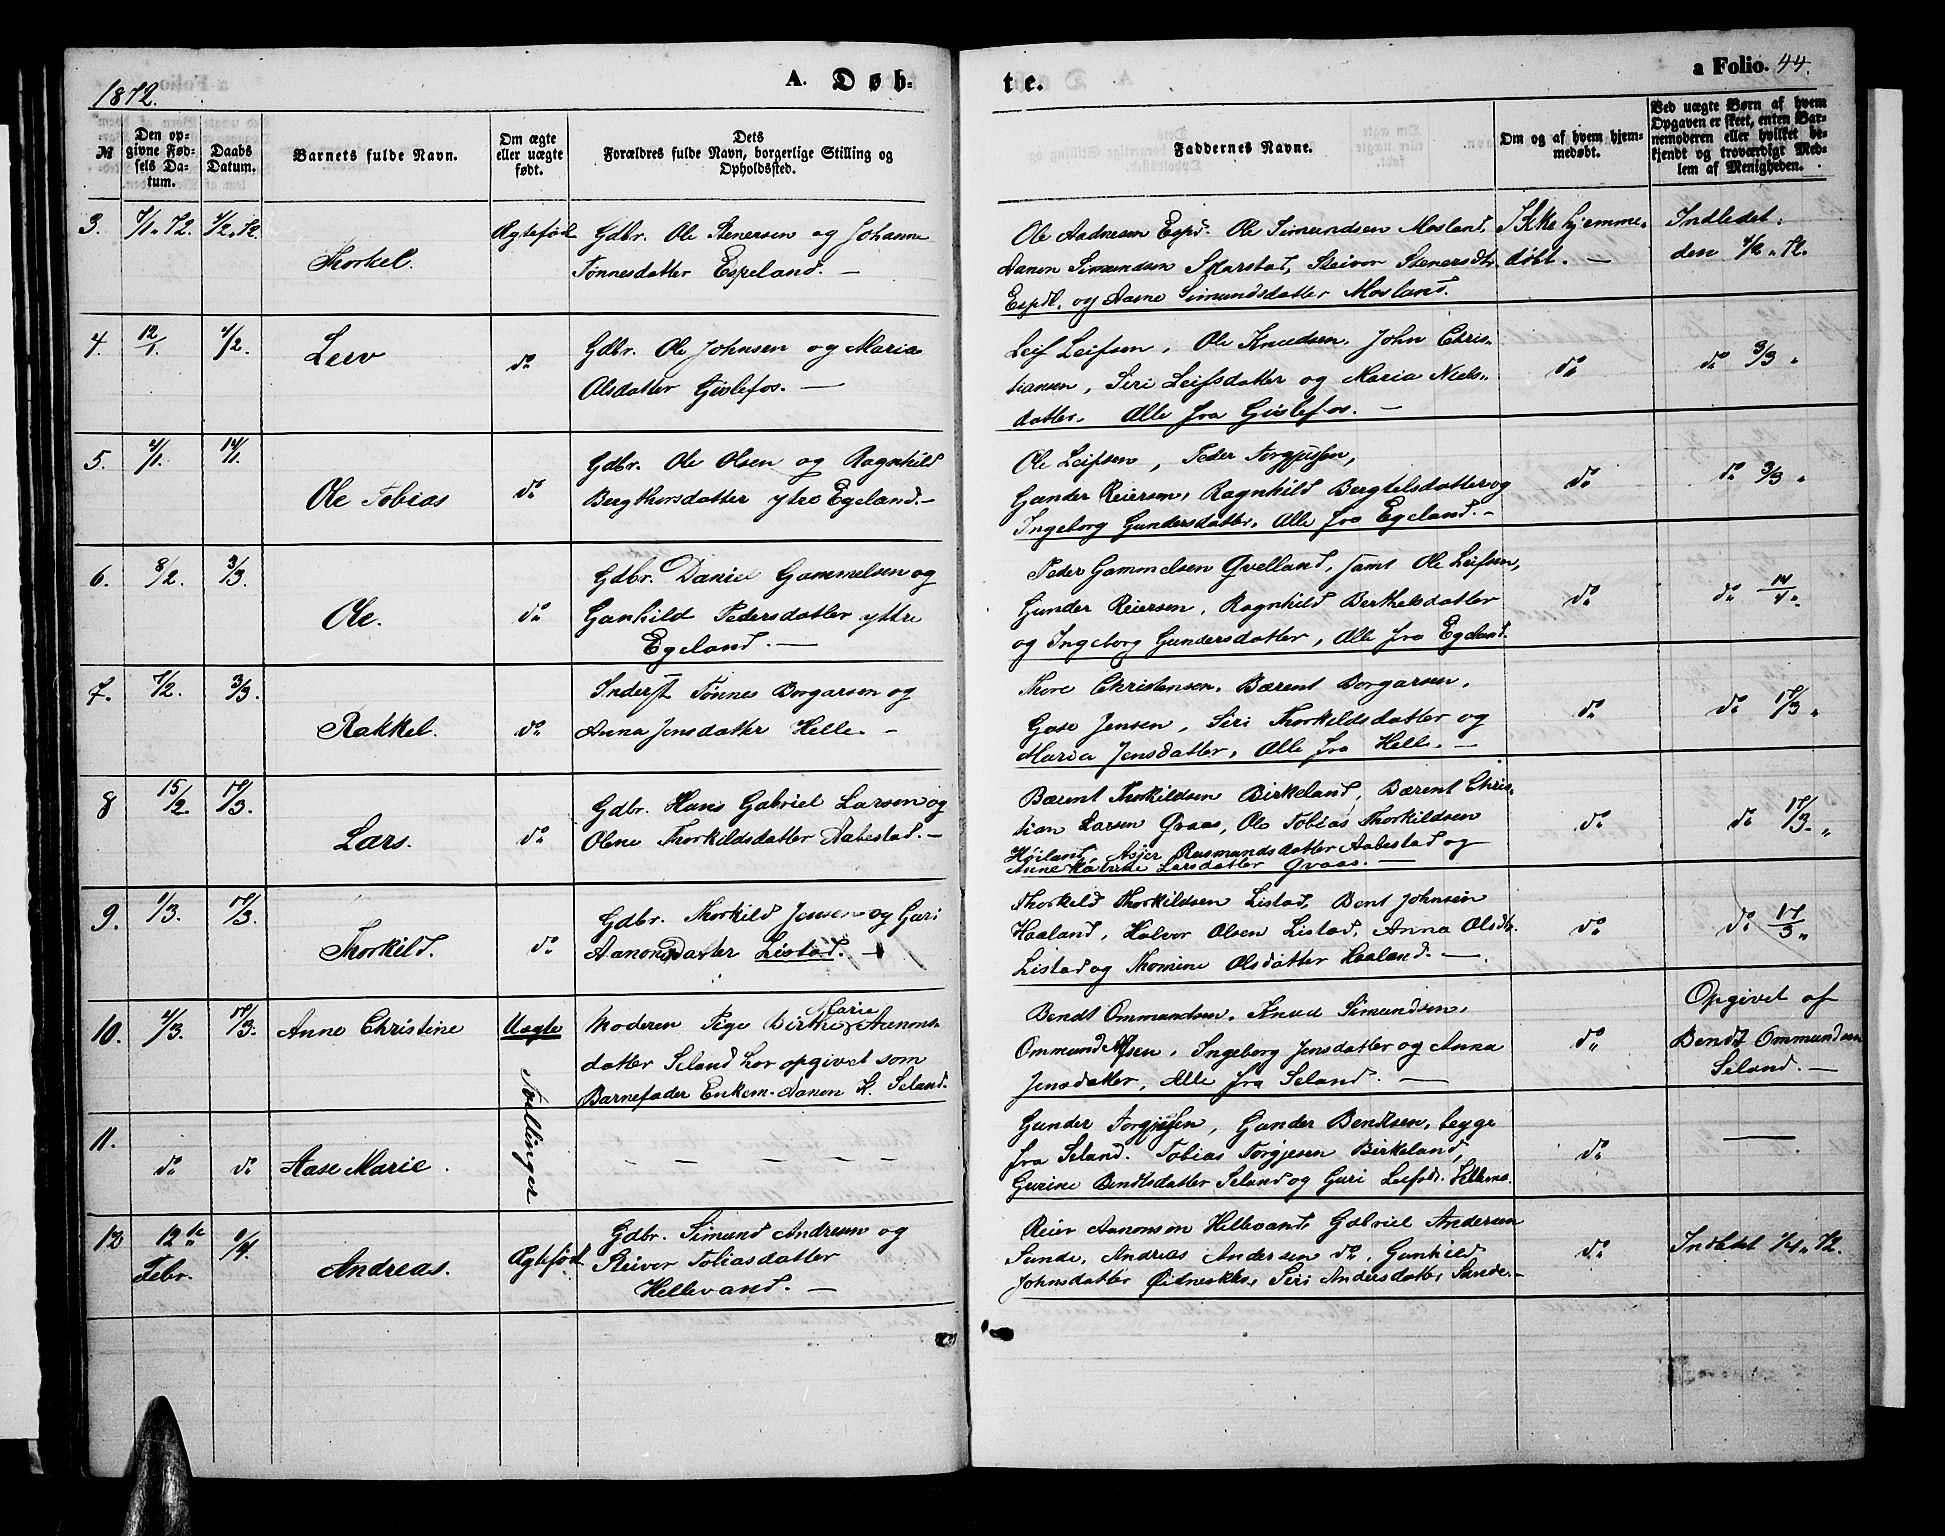 1872.
A. Døb-
te.
a Folio. 44.
№
Den op-
givne Fød-
sels Da-
tum.
Daabs
Datum.
Barnets fulde Navn.
Om ægte
eller uægte
født.
Dets
Forældres fulde Navn, borgerlige Stilling og
Opholdssted.
Faddernes Navne.
Om og af hvem hjem-
medøbt.
Ved uægte Børn af hvem
Opgaven er skeet, enten Bar-
nemoderen eller hvilket be-
kjendt og troværdigt Med-
lem af Menigheden.
3.
7/1. 72.
4/2. 72.
Thorkel.
Ægtefød
Gdbr. Ole Stenersen og Johanne
Tønnesdatter Espeland. —
Ole Aadnesen Espd. Ole Simundsen Mosland,
Aanon Simundsen Skarstad, Steivor Stenersdtr.
Espdl. og Aasne Simundsdatter Mosland.
Ikke hjemme-
døbt. —
Indledet
den 4/2. 72.
4.
12/1.
4/2.
Lerv
do
Gdbr. Ole Johnsen og Maria
Olsdatter Gislefos. —
Leif Leifsen, Ole Knudsen, John Chris-
tiansen, Seri Leifsdatter og Maria Niels-
datter. Alle fra Gislefos. —
do
do 3/3.
5.
4/1.
14/1.
Ole Tobias
do
Gdbr. Ole Olsen og Ragnhild
Bergthorsdatter ytre Egeland. —
Ole Leifsen, Peder Torgjusen,
Gunder Reiersen, Ragnhild Bergtelsdatter og
Ingeborg Gundersdatter, Alle fra Egeland. —
do
do 3/3.
6.
8/2.
3/3.
Ole.
do
Gdbr. Daniel Gammelsen og
Gunhild Pedersdatter yttre
Egeland. —
Peder Gammelsen Qvelland, samt Ole Leifsen,
Gunder Reiersen, Ragnhild Berthelsdatter
og Ingeborg Gundersdatter, Alle fra Egeland.
do
do 14/4.
7.
7/2.
3/3.
Rakkel.
do
Inderst Tønnes Borgarsen og
Anna Jensdatter Helle. —
Thore Christensen, Bærent Borgarsen,
Gose Jensen, Siri Thorkildsdatter og
Maria Jensdatter, Alle fra Helle. —
do
do 17/3.
8
15/2.
17/3.
Lars.
do
Gdbr. Hans Gabriel Larsen og
Olene Thorkildsdatter Aabestad. —
Bærent Thorkildsen Birkeland, Bærent Chris-
tian Larsen Qvaas, Ole Tobias Thorkildsen
Høiland, Asjer Rasmundsdatter Aabestad og
Anne Larsdatter Qvaas. —
do
do 17/3.
9.
1/3.
17/3.
Thorkild.
do
Gdbr. Thorkild Jensen og Guri
Aanonsdatter Listad. —
Thorkeld Thorkildsen Listad, Bent Johnsen
Haaland, Halvor Olsen Listad, Anna Olsdtr.
Listad og Thomine Olsdatter Haaland. —
do
do 17/3.
10.
4/3.
17/3.
Anne Christine
Uægte
Moderen Pige Birthe Marie Aanons-
datter Seland har opgivet som
Barnefader Enkem. Aanon K. Seland.
Bendt Ommundsen, Knud Simundsen,
Ommund Alfsen, Ingeborg Jensdatter og Anna
Jensdatter, Alle fra Seland. —
do
Opgivet af
Bendt Ommundsen
Seland. —
Tvillinger
11.
do
do
Aase Marie.
— — — — —
Gunder Torgjusen, Gunder Bendtsen, begge
fra Seland. Tobias Torgjesen Birkeland,
Gurine Bendtsdatter Seland og Guri Leifsdr.
do
—
12
12te
Febr.
1/4.
Andreas.
Ægtefød
Gdbr. Simund Andresen og
Steivor Tobiasdatter
Hellevand. —
Reier Aanonsen Hellevand, Gabriel Andersen
Sunde, Andreas Andersen do, Gunhild
Johnsdatter, Siri Andersdatter Sunde. —
do
Indledet 1/4. 72.